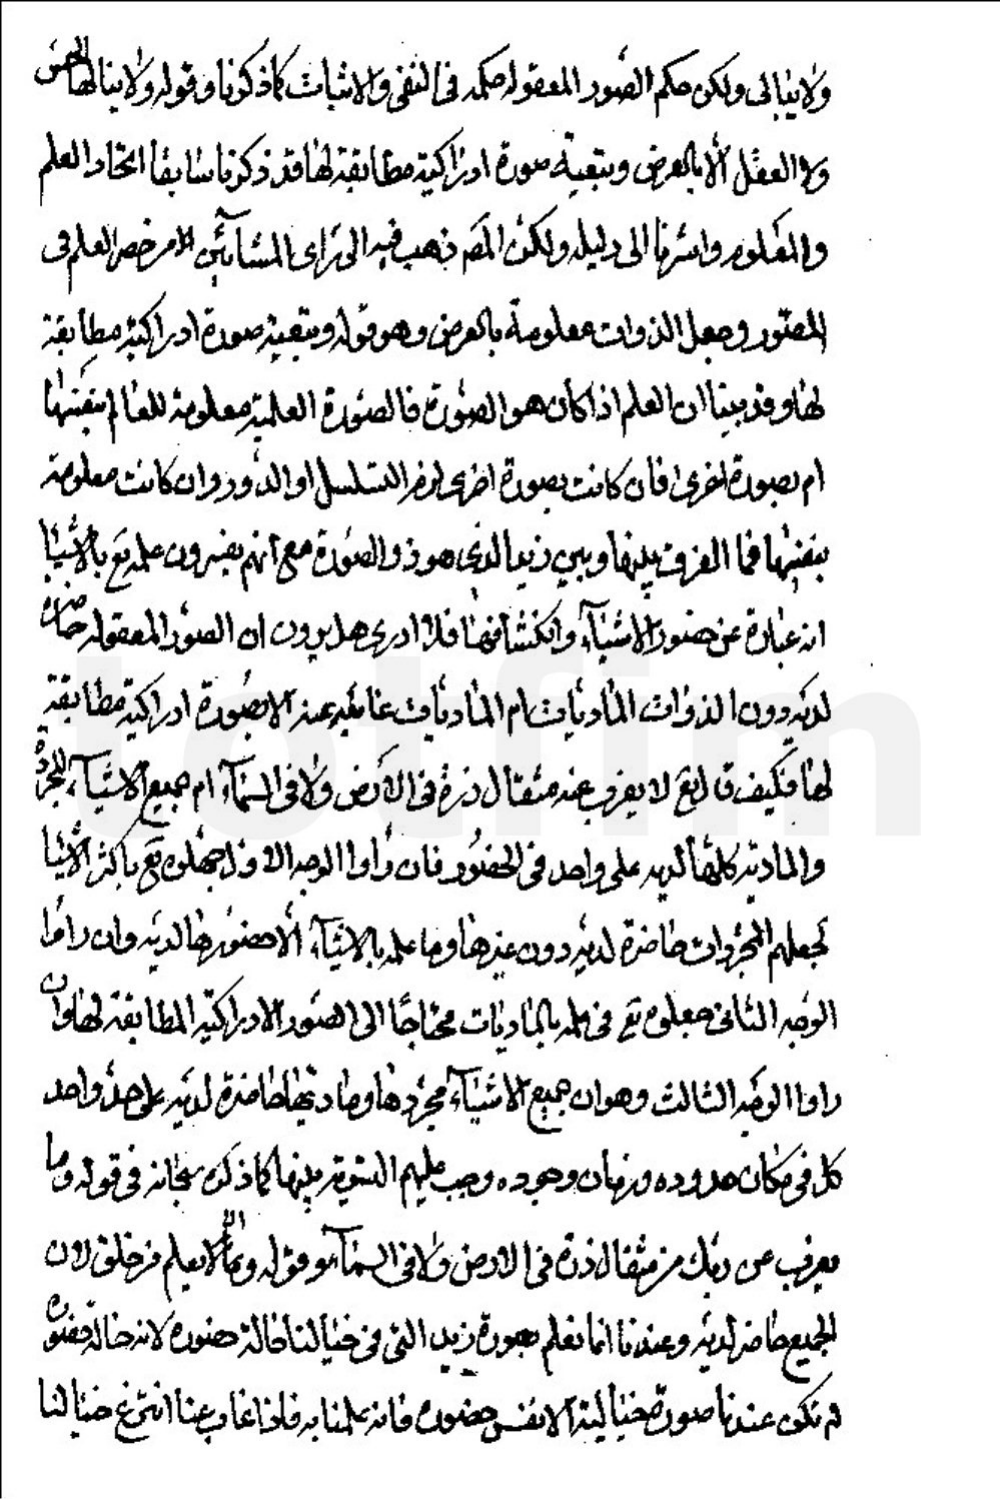 ولا ينالى ولكن حكم الصور المعقوله حكمه فى النفى والاثبات كما ذكرنا وقوله ولا ينالها الحس
ولا العقل الا بالعرض وبتبعية صورة ادراكية مطابقة لها قد ذكرنا سابقا اتحاد العلم
والمعلوم واشرنا الى دليله ولكن المص ذهب فيه الى راى المشائين الا من خص العلم فى
الصور وجعل الذوات معلومة بالعرض وهو قوله وبتبعية صورة ادراكية مطابقة
لها وقد بينا ان العلم اذا كان هو الصورة فالصورة العلمية معلومة للعالم بنفسها
ام بصورة اخرى فان كانت بصورة اخرى لزم التسلسل او الدور وان كانت معلومة
بنفسها فما الفرق بينها وبين زيد الذى هو ذو الصورة مع انهم يفسرون علمه تع بالاشياء
انه عبارة عن حضور الاشياء وانكشافها فلا ادرى هل يرون ان الصور المعقوله حاضرة
لديه دون الذوات الماديات ام الماديات غائبه عنه الا بصورة ادراكية مطابقة
لها فكيف قال تع لا يعزب عنه مثقال ذرة فى الارض ولا فى السماء ام جميع الاشياء المجردة
والماديه كلها لديه على واحد فى الحضور فان راوا الوجه الاول جهلوه تع باكثر الاشياء
لجعلهم المجردات حاضرة لديه دون غيرها وما علمه بالاشياء الا حضورها لديه وان راوا
الوجه الثانى جعلوه تع فى علمه بالماديات محتاجا الى الصور الادراكية المطابقة لها وان
راوا الوجه الثالث وهو ان جميع الاشياء مجردها وماديها حاضرة لديه على حد واحد
كل فى مكان حدوده وزمان وجوده وجب عليهم التسوية بينها كما ذكره سبحانه فى قوله وما
يعزب عن ربك من مثقال ذرة فى الارض ولا فى السماء وقوله الا يعلم من خلق لان
الجميع حاضر لديه وعندنا انما نعلم بصورة زيد التى فى خيالنا حالة حضوره لانه حالة حضوره
لم تكن عندنا صورة خيالية الا نفس حضوره فانه علمنا به فاذا غاب عنا انتزع خيالنا